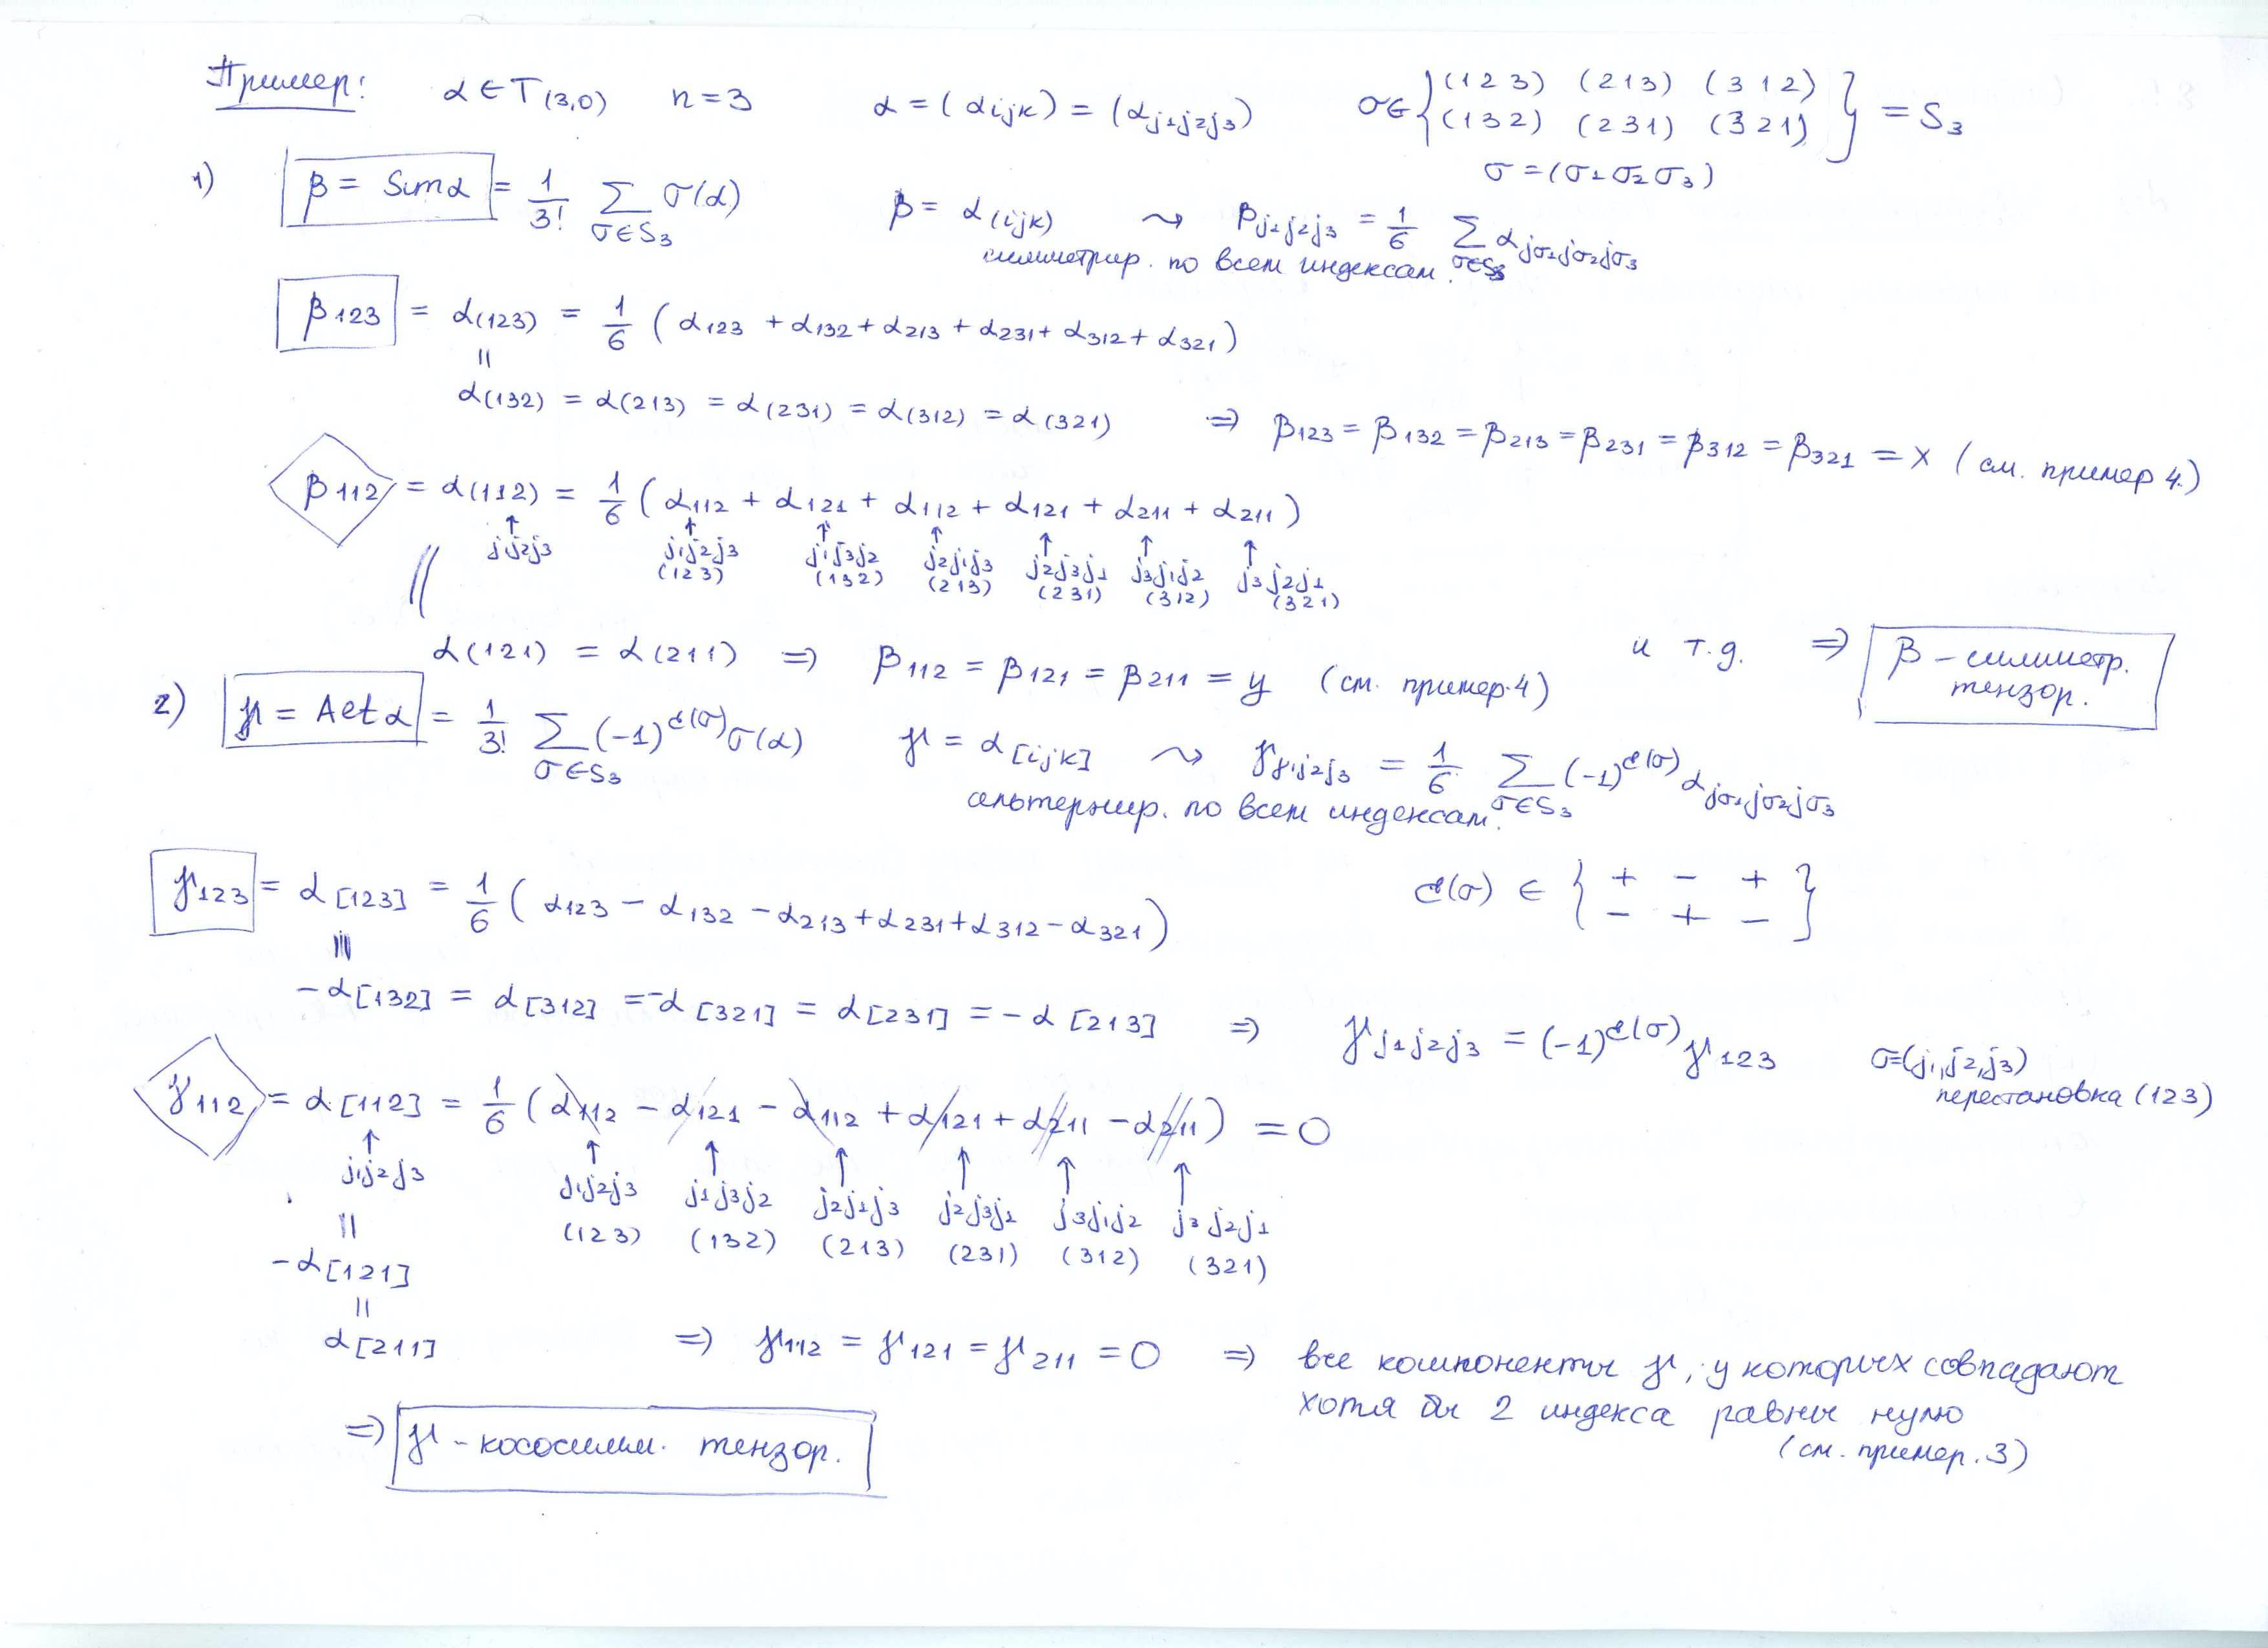 Пример: α ∈ T(3,0) n = 3 α = (αijk) = (αj1j2j3) σ ∈ { (1 2 3) (2 1 3) (3 1 2)
(1 3 2) (2 3 1) (3 2 1) } = S3
σ = (σ1 σ2 σ3)
1) β = Sim α = 1/3! ∑σ∈S3 σ(α) β = α(ijk) ⇝ βj1j2j3 = 1/6 ∑σ∈S3 αjσ1jσ2jσ3
симметрир. по всем индексам.
β123 = α(123) = 1/6 (α123 + α132 + α213 + α231 + α312 + α321)
||
α(132) = α(213) = α(231) = α(312) = α(321) ⇒ β123 = β132 = β213 = β231 = β312 = β321 = x (см. пример 4.)
β112 = α(112) = 1/6 (α112 + α121 + α112 + α121 + α211 + α211)
↑ ↑ ↑ ↑ ↑ ↑ ↑
j1j2j3 j1j2j3 j1j3j2 j2j1j3 j2j3j1 j3j1j2 j3j2j1
(123) (132) (213) (231) (312) (321)
||
α(121) = α(211) ⇒ β112 = β121 = β211 = y (см. пример.4) и т.д. ⇒ β – симметр.
тензор.
2) γ = Alt α = 1/3! ∑σ∈S3 (-1)^ε(σ) σ(α) γ = α[ijk] ⇝ γj1j2j3 = 1/6 ∑σ∈S3 (-1)^ε(σ) αjσ1jσ2jσ3
альтернир. по всем индексам.
γ123 = α[123] = 1/6 (α123 − α132 − α213 + α231 + α312 − α321) ε(σ) ∈ { + − +
− + − }
||
−α[132] = α[312] = −α[321] = α[231] = −α[213] ⇒ γj1j2j3 = (-1)^ε(σ) γ123 σ=(j1,j2,j3)
перестановка (123)
γ112 = α[112] = 1/6 (α112 − α121 − α112 + α121 + α211 − α211) = 0
↑ ↑ ↑ ↑ ↑ ↑ ↑
j1j2j3 j1j2j3 j1j3j2 j2j1j3 j2j3j1 j3j1j2 j3j2j1
(123) (132) (213) (231) (312) (321)
||
−α[121]
||
α[211] ⇒ γ112 = γ121 = γ211 = 0 ⇒ все компоненты γ, у которых совпадают
хотя бы 2 индекса равны нулю
(см. пример.3)
⇒ γ – кососимм. тензор.